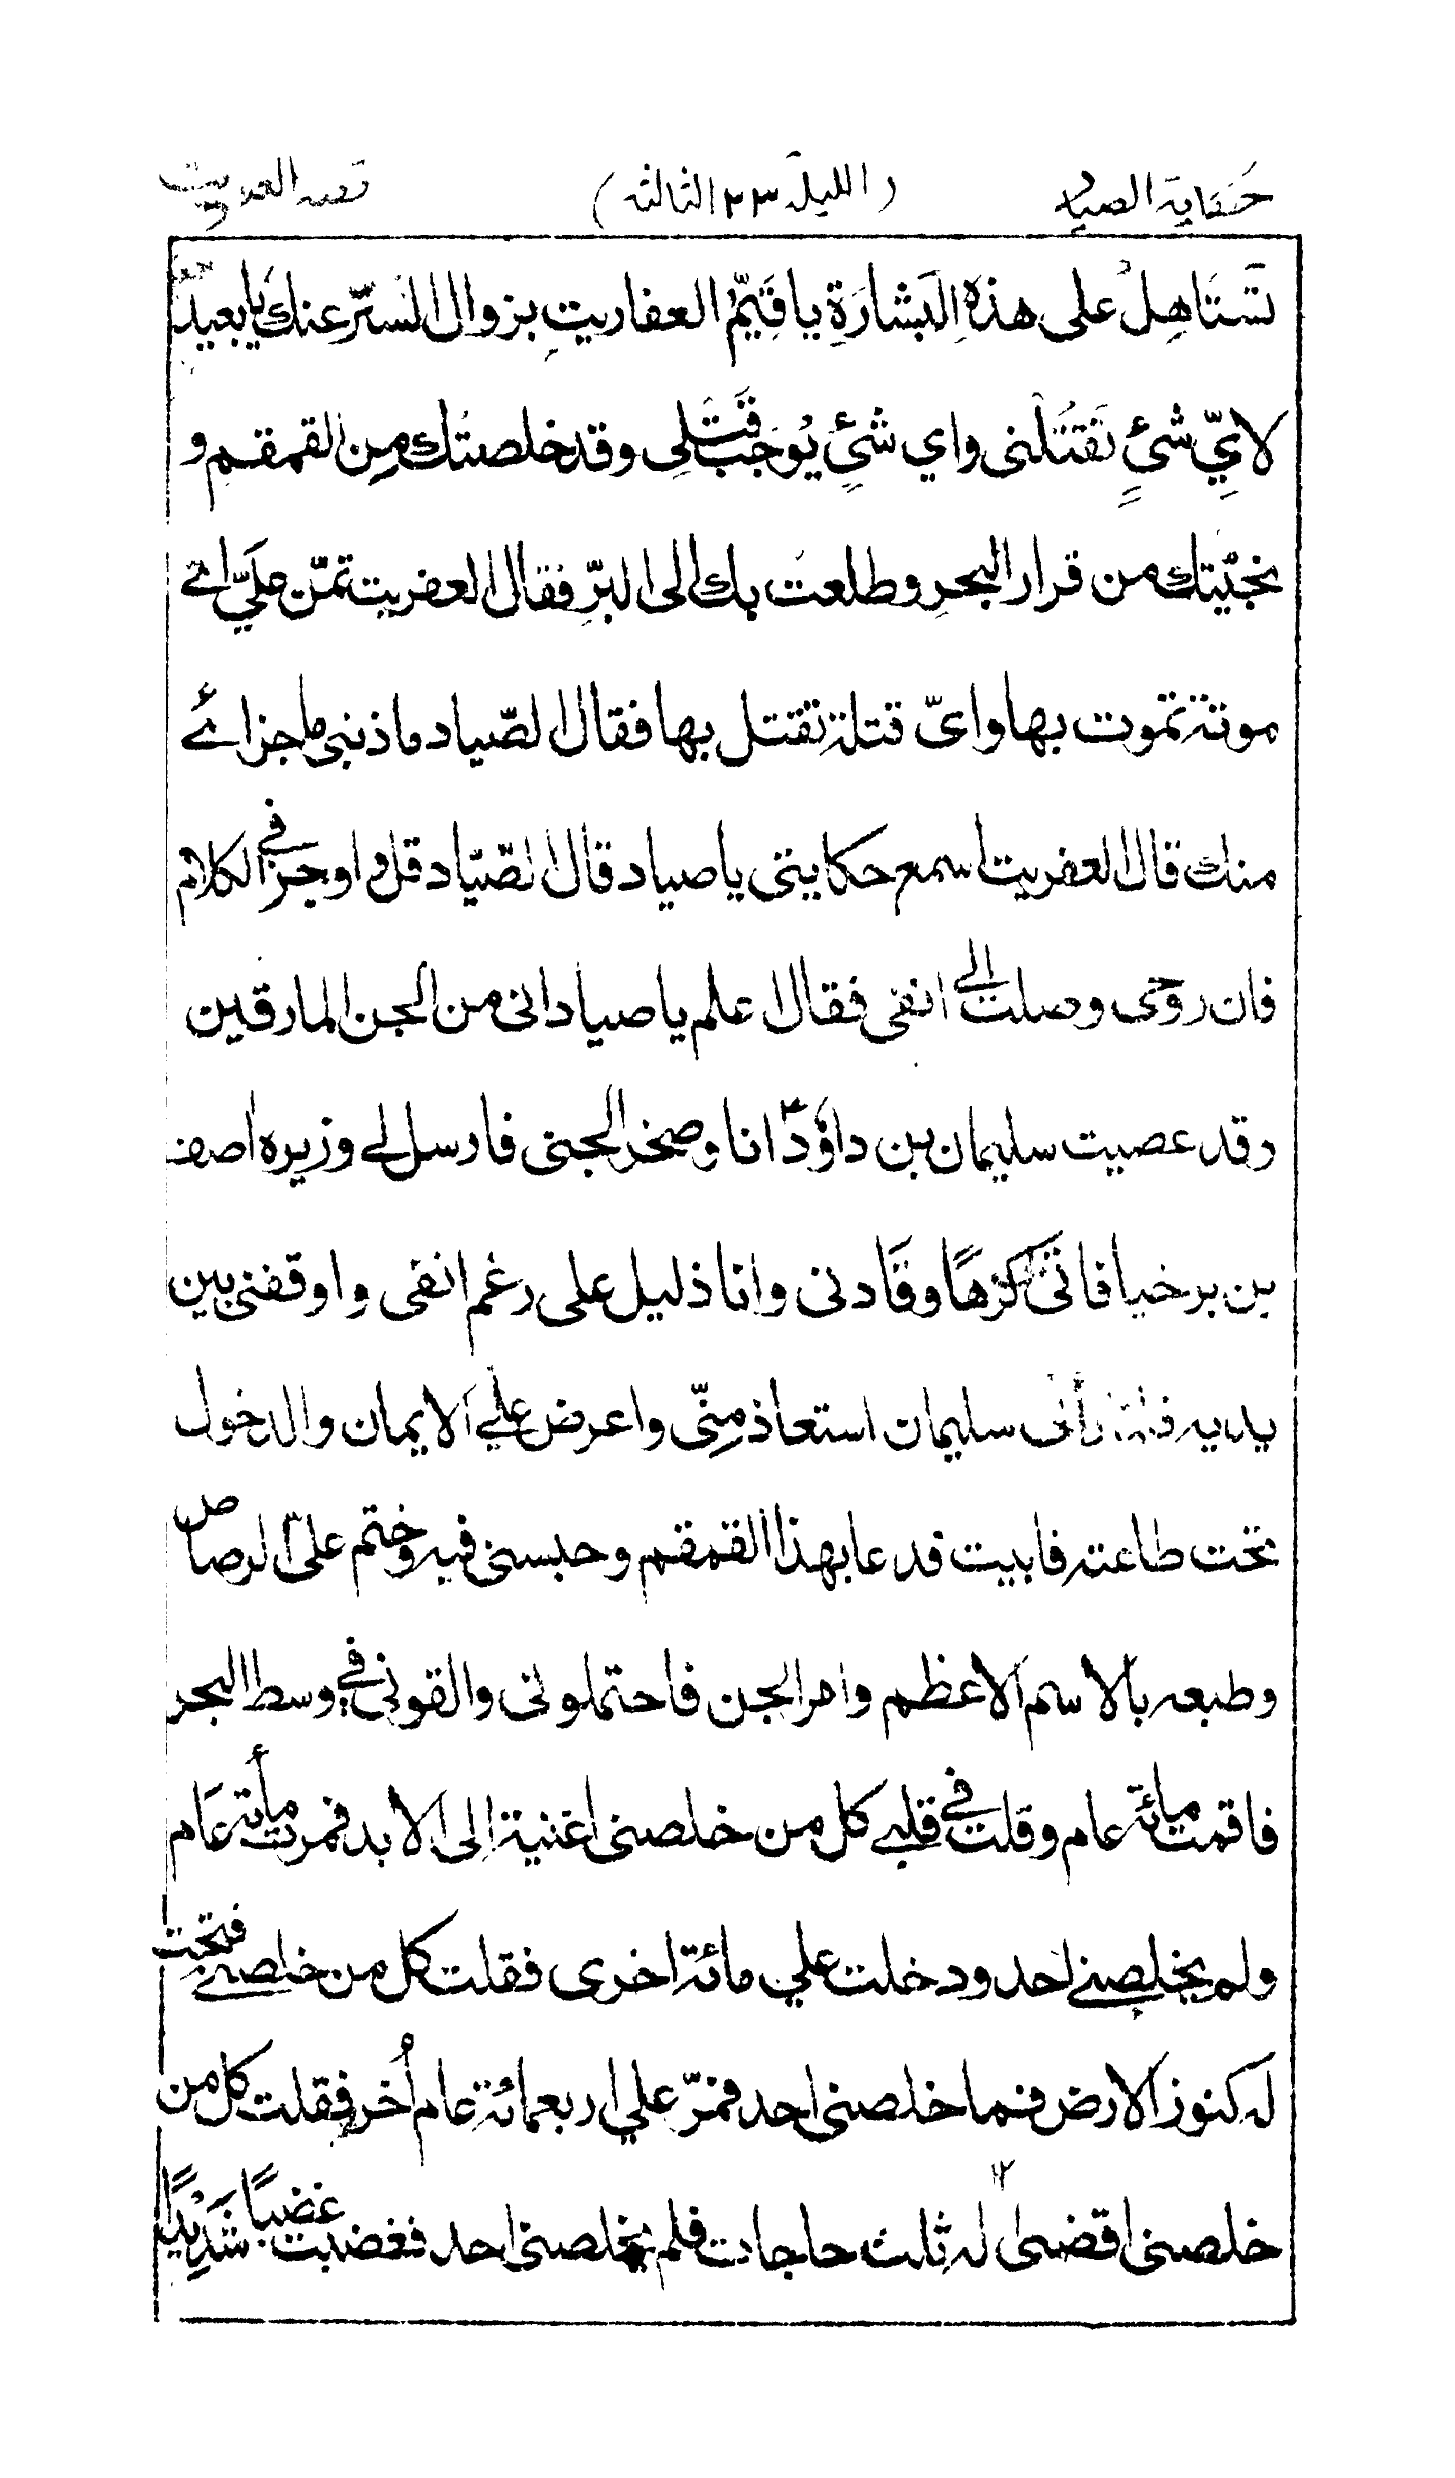 حكاية الصياد (الليلة ٢٣ الثالثة) قصة العفريت
تَستَاهِلُ على هذهِ البَشارَةِ يا قَيّمَ العفاريتِ بزوال السّترِ عنك يا بعيد
لايِّ شئٍ تَقتُلنى واي شئٍ يُوجَب قَتَلِى وقد خلصتُك مِن القمقم و
نجيّتك من قرار البحرِ وطلعت بك الى البرِّ فقال العفريت تمنّ عليَّ اے
موتة تموت بها واىّ قتلة تقتل بها فقال الصّياد ما ذنبى ما جزاۓ
منك قال العفريت اسمع حكايتى يا صياد قال الصّيّاد قل واوجز في الكلام
فان روحى وصلت الى انفى فقال اعلم يا صياد انى من الجن المارقين
وقد عصيت سليمان بن داؤد انا وصخر الجنى فارسل لے وزيره اصف
بن برخيا فاتى كَرْهًا وقَادنى وانا ذليل على رغم انفى واوقفنى بين
يديه فلما رأنى سليمان استعاذ مِنّى واعرض علي الايمان والدخول
تحت طاعته فابيت فدعا بهذا القمقم وحبسنى فيه وختم علىّ الرصاص
وطبعه بالاسم الاعظم وامر الجن فاحتملونى والقونى في وسط البحر
فاقمت مائة عام وقلت في قلبے كل من خلصنى اغنيته الى الابد فمرت مأية عَام
ولم يخلصنے احد ودخلت علي مائة اخرى فقلت كل من خلصنے فتحت
له كنوز الارض فما خلصنى احد فمرّ علي اربعمائة عام اُخر فقلت كل من
خلصنى اقضى له ثلث حاجات فلم يخلصنى احد فغضبت غضبًا شَدِيْدًا